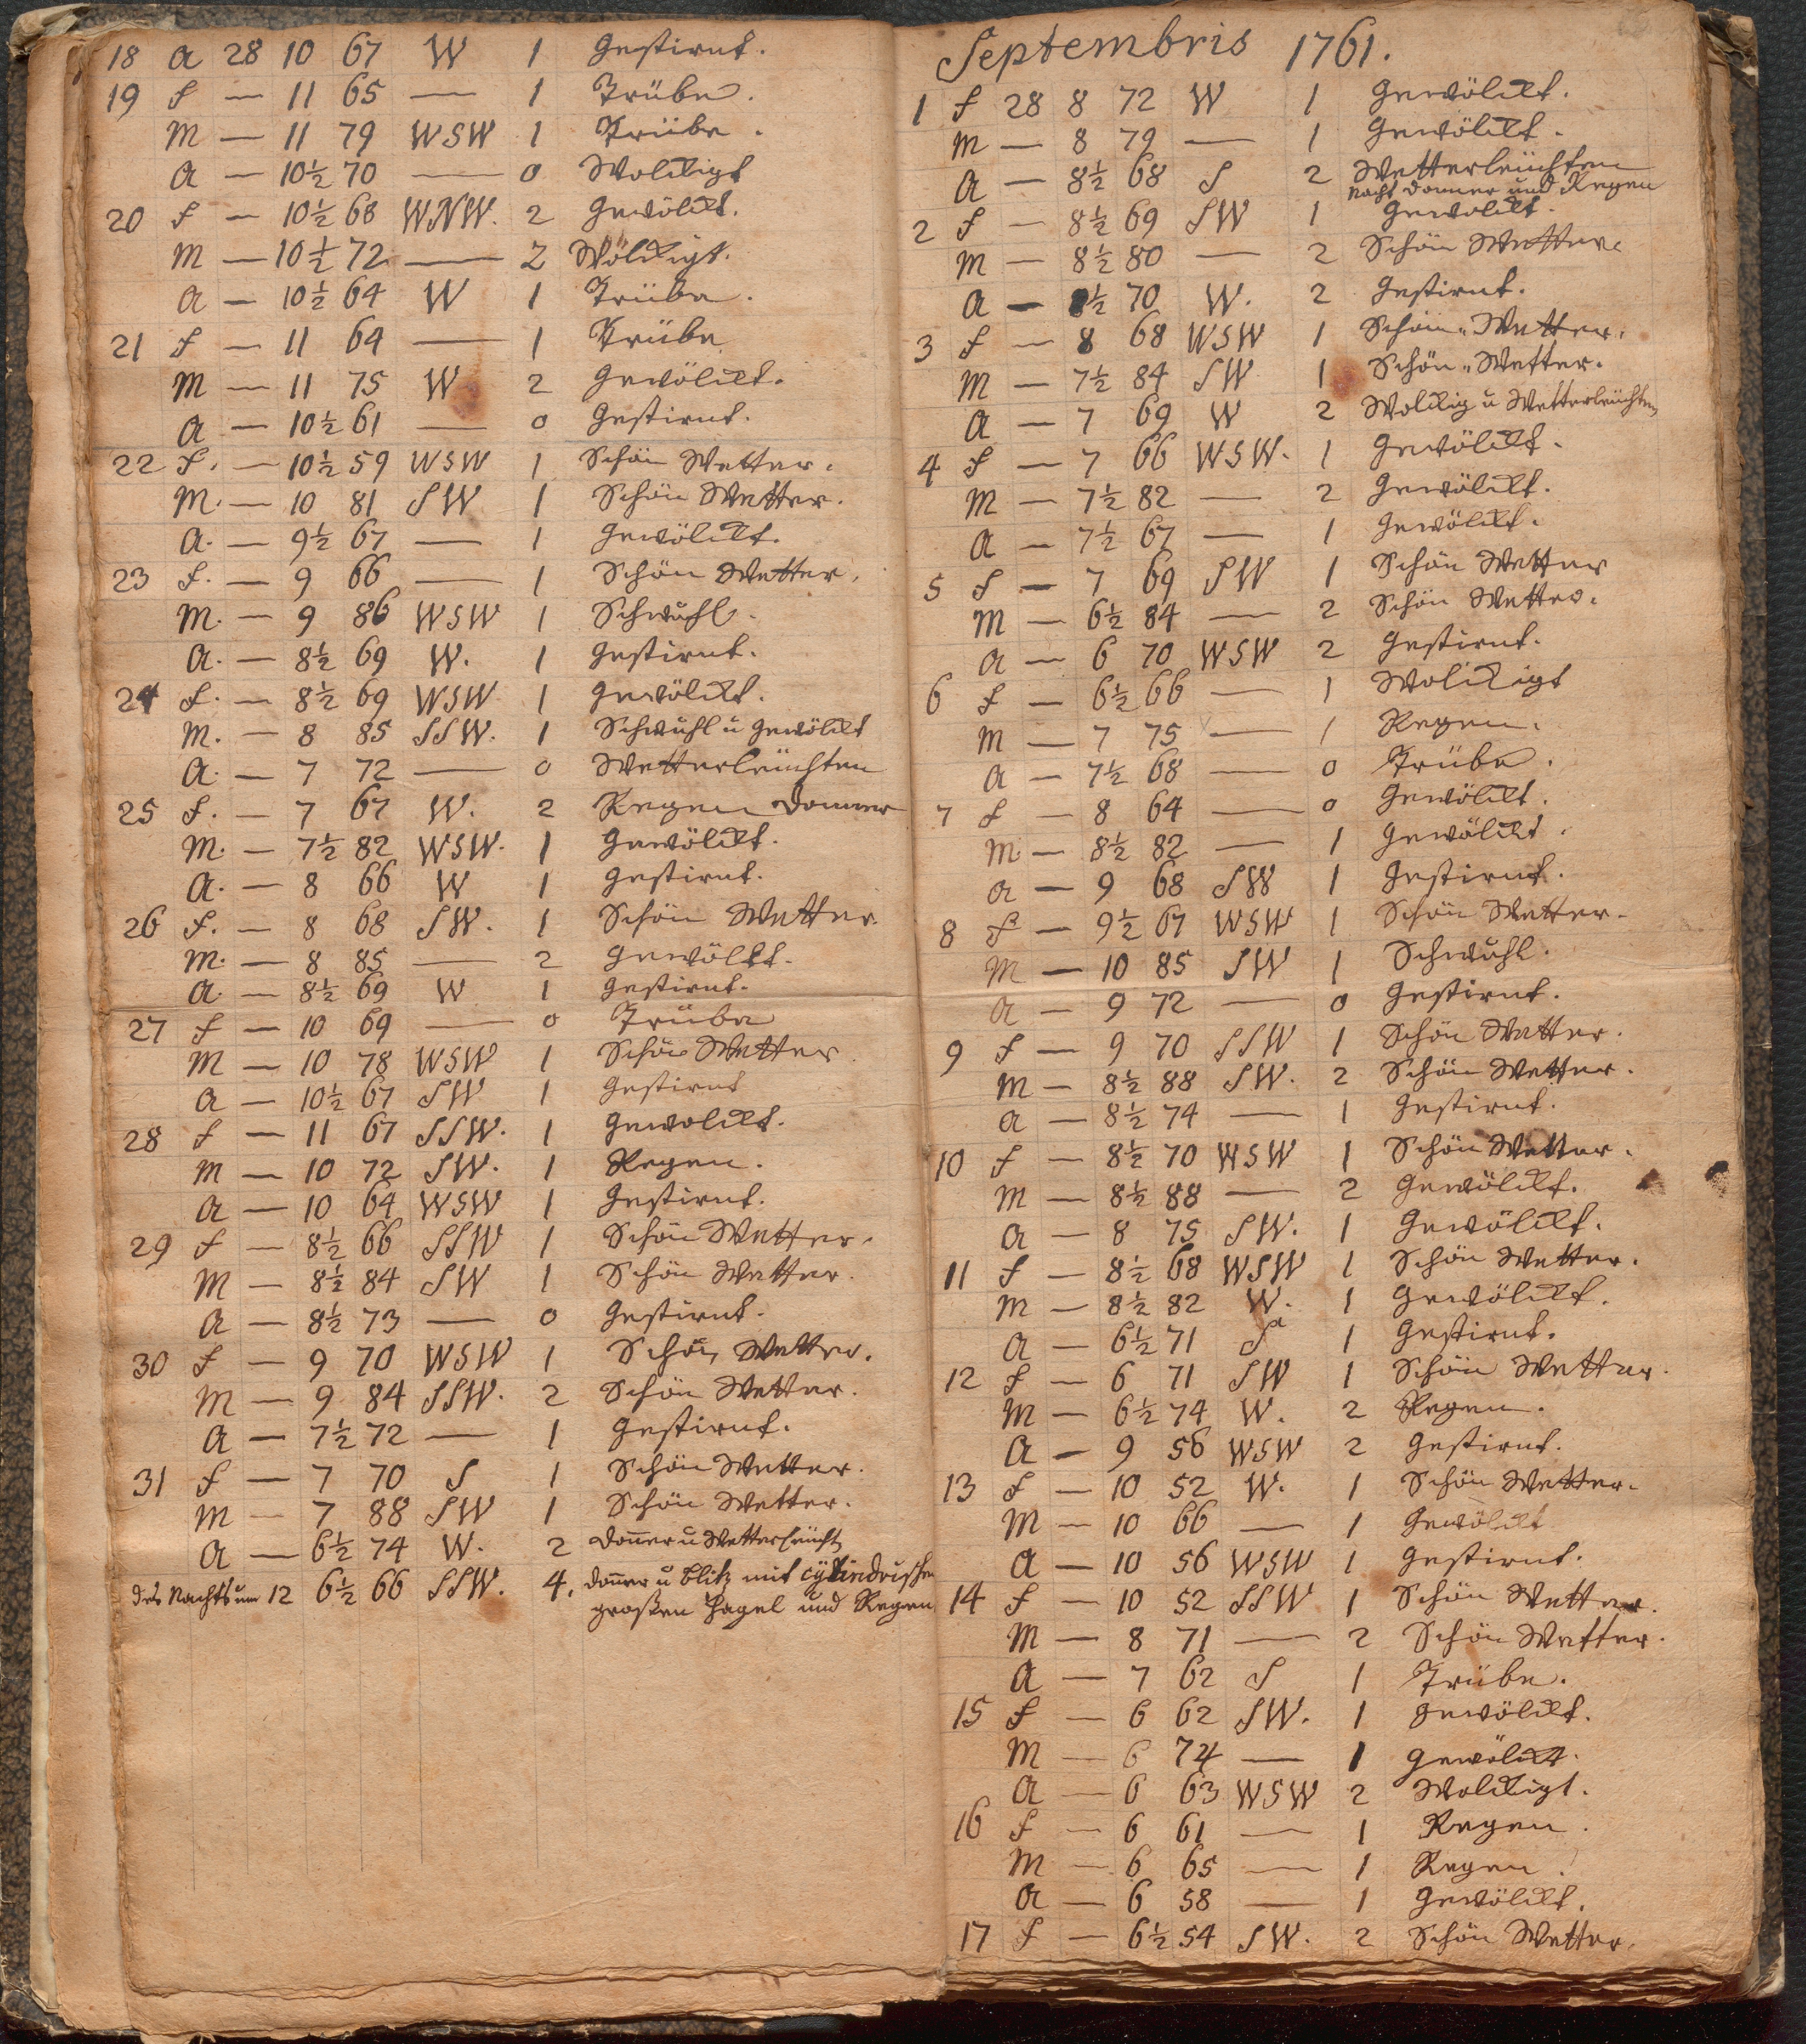 18 a 28 10 67 W 1 Gestirnt.
19 f — 11 65 — 1 Trübe.
M — 11 79 WSW 1 Trübe.
a — 10½ 70 — 0 Wolckigt
20 f — 10½ 68 WNW. 2 Gewölckt.
M — 10½ 72 — 2 Wölckigt.
a — 10½ 64 W 1 Trübe.
21 f — 11 64 — 1 Trübe
M — 11 75 W 2 Gewölckt.
a — 10½ 61 — 0 Gestirnt.
22 f. — 10½ 59 WSW 1 Schön Wetter.
M. — 10 81 SW 1 Schön Wetter.
a. — 9½ 67 — 1 Gewölckt.
23 f. — 9 66 — 1 Schön Wetter.
M. — 9 86 WSW 1 Schwuhl.
a. — 8½ 69 W. 1 Gestirnt.
24 f. — 8½ 69 WSW 1 Gewölckt.
M. — 8 85 SSW. 1 Schwuhl u Gewölckt
a. — 7 72 — 0 Wetterleuchten
25 f. — 7 67 W. 2 Regen Donner
M. — 7½ 82 WSW. 1 Gewölckt.
a. — 8 66 W 1 Gestirnt.
26 f. — 8 68 SW. 1 Schön Wetter.
M. — 8 85 — 2 Gewölkt.
a. — 8½ 69 W 1 Gestirnt.
27 f — 10 69 — 0 Trübe
M — 10 78 WSW 1 Schön Wetter.
a — 10½ 67 SW 1 Gestirnt
28 f — 11 67 SSW. 1 Gewolckt.
M — 10 72 SW. 1 Regen.
a — 10 64 WSW 1 Gestirnt.
29 f — 8½ 66 SSW 1 Schön Wetter.
M — 8½ 84 SW 1 Schön Wetter.
a — 8½ 73 — 0 Gestirnt.
30 f — 9 70 WSW 1 Schön Wetter.
M — 9 84 SSW. 2 Schön Wetter.
a — 7½ 72 — 1 Gestirnt.
31 f — 7 70 S 1 Schön Wetter.
M — 7 88 SW 1 Schön Wetter.
a — 6½ 74 W. 2 Doñer u Wetterleucht
des Nachts um 12 6½ 66 SSW. 4. Doñer u Blitz mit cylindrischen
großen Hagel und Regen
Septembris 1761.
1 f 28 8 72 W 1 Gewölckt.
M — 8 79 — 1 Gewölckt.
a — 8½ 68 S 2 Wetterleuchten
Nacht Donner und Regen
2 f — 8½ 69 SW 1 Gewolckt.
M — 8½ 80 — 2 Schön Wetter.
a — 8½ 70 W. 2 Gestirnt.
3 f — 8 68 WSW 1 Schön Wetter.
M — 7½ 84 SW 1 Schön Wetter.
a — 7 69 W 2 Wolckig u Wetterleuchten
4 f — 7 66 WSW. 1 Gewölckt.
M — 7½ 82 — 2 Gewölckt.
a — 7½ 67 — 1 Gewölckt.
5 f — 7 69 SW 1 Schön Wetter
M — 6½ 84 — 2 Schön Wetter.
a — 6 70 WSW 2 Gestirnt.
6 f — 6½ 66 — 1 Wolckigt
M — 7 75 — 1 Regen.
a — 7½ 68 — 0 Trübe.
7 f — 8 64 — 0 Gewölckt.
M. — 8½ 82 — 1 Gewölckt.
a — 9 68 SW 1 Gestirnt.
8 f — 9½ 67 WSW 1 Schön Wetter.
M — 10 85 SW 1 Schwuhl.
a — 9 72 — 0 Gestirnt.
9 f — 9 70 SSW 1 Schön Wetter.
M — 8½ 88 SW. 2 Schön Wetter.
a — 8½ 74 — 1 Gestirnt.
10 f — 8½ 70 WSW 1 Schön Wetter.
M — 8½ 88 — 2 Gewölckt.
a — 8 75 SW. 1 Gewölckt.
11 f — 8½ 68 WSW 1 Schön Wetter.
M — 8½ 82 W. 1 Gewölckt.
a — 6½ 71 S 1 Gestirnt.
12 f — 6 71 SW 1 Schön Wetter.
M — 6½ 74 W. 2 Regen.
a — 9 56 WSW 2 Gestirnt.
13 f — 10 52 W. 1 Schön Wetter.
M — 10 66 — 1 Gewölckt
a — 10 56 WSW 1 Gestirnt.
14 f — 10 52 SSW 1 Schön Wetter.
M — 8 71 — 2 Schön Wetter.
a — 7 62 S 1 Trübe.
15 f — 6 62 SW. 1 Gewölckt.
M — 6 74 — 1 Gewölckt.
a — 6 63 WSW 2 Wolckigt.
16 f — 6 61 — 1 Regen.
M — 6 65 — 1 Regen.
a — 6 58 — 1 Gewölckt.
17 f — 6½ 54 SW. 2 Schön Wetter.